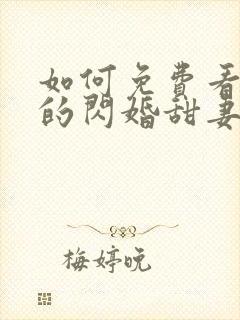 如何免費看
的閃婚甜妻
梅婷晚